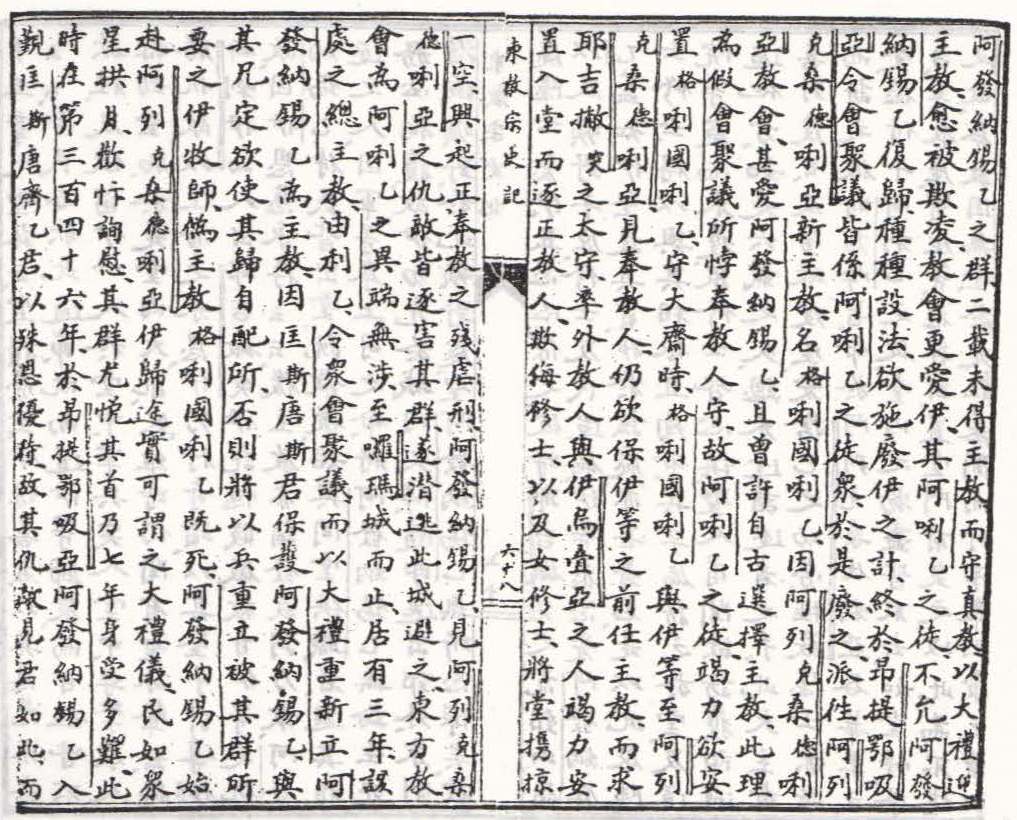 阿發納錫乙之群、二載未得主教、而守真教、以大禮迎
主教、愈被欺凌、教會更愛伊、其阿唎乙之徒、不允阿發
納錫乙復歸、種種設法、欲施廢伊之計、終於昂提鄂吸
亞、令會聚議、皆係阿唎乙之徒衆、於是廢之、派住阿列
克桑德唎亞新主教、名格唎國唎乙、因阿列克桑德唎
亞教會、甚愛阿發納錫乙、且曾許自古選擇主教、此理
為假會聚議所悖、奉教人守、故阿唎乙之徒、竭力欲安
置格唎國唎乙、守大齋時、格唎國唎乙與伊等至阿列
克桑德唎亞、見奉教人、仍欲保伊等之前任主教、而求
耶吉撇突之太守、率外教人與伊烏疊亞之人竭力安
置入堂而逐正教人、欺侮修士、以及女修士、將堂擄掠
東教宗史記
六十八
一空、興起正奉教之殘虐刑、阿發納錫乙、見阿列克桑
德唎亞之仇敵皆逐害其群、遂潛逃此城避之、東方教
會為阿唎乙之異端無涉、至囉瑪城而止、居有三年、該
處之總主教、由利乙、令衆會聚議、而以大禮重新立阿
發納錫乙為主教、因匡斯唐斯君保護阿發納錫乙、與
其兄定欲使其歸自配所、否則將以兵重立被其群所
要之伊牧師、偽主教格唎國唎乙既死、阿發納錫乙始
赴阿列克桑德唎亞、伊歸途實可謂之大禮儀、民如衆
星拱月、歡忭詢慰、其群尤悅其首、乃七年身受多難、此
時在第三百四十六年、於昂提鄂吸亞阿發納錫乙入
覲匡斯唐齊乙君、以殊恩優待、故其仇敵見君如此、而